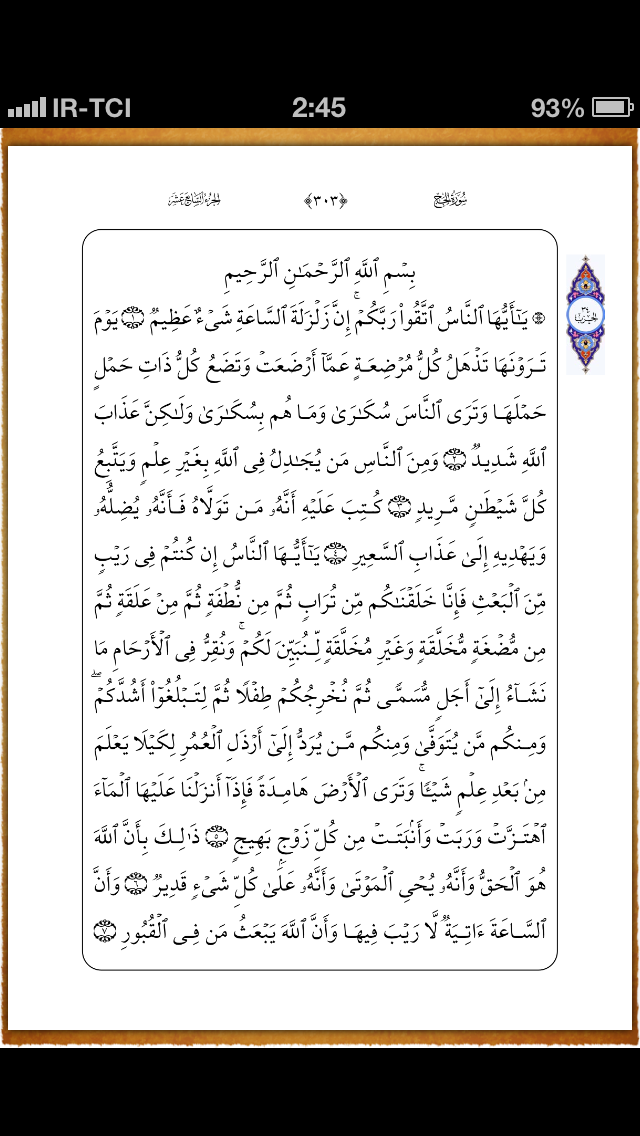 IR-TCI 2:45 93%
سُورَةُ الحَجّ ﴿٣٠٣﴾ الجُزءُ السَّابِعَ عَشَر
بِسْمِ ٱللَّهِ ٱلرَّحْمَـٰنِ ٱلرَّحِيمِ
۞ يَـٰٓأَيُّهَا ٱلنَّاسُ ٱتَّقُوا۟ رَبَّكُمْ ۚ إِنَّ زَلْزَلَةَ ٱلسَّاعَةِ شَىْءٌ عَظِيمٌ ﴿١﴾ يَوْمَ
تَرَوْنَهَا تَذْهَلُ كُلُّ مُرْضِعَةٍ عَمَّآ أَرْضَعَتْ وَتَضَعُ كُلُّ ذَاتِ حَمْلٍ
حَمْلَهَا وَتَرَى ٱلنَّاسَ سُكَـٰرَىٰ وَمَا هُم بِسُكَـٰرَىٰ وَلَـٰكِنَّ عَذَابَ
ٱللَّهِ شَدِيدٌ ﴿٢﴾ وَمِنَ ٱلنَّاسِ مَن يُجَـٰدِلُ فِى ٱللَّهِ بِغَيْرِ عِلْمٍ وَيَتَّبِعُ
كُلَّ شَيْطَـٰنٍ مَّرِيدٍ ﴿٣﴾ كُتِبَ عَلَيْهِ أَنَّهُۥ مَن تَوَلَّاهُ فَأَنَّهُۥ يُضِلُّهُۥ
وَيَهْدِيهِ إِلَىٰ عَذَابِ ٱلسَّعِيرِ ﴿٤﴾ يَـٰٓأَيُّهَا ٱلنَّاسُ إِن كُنتُمْ فِى رَيْبٍ
مِّنَ ٱلْبَعْثِ فَإِنَّا خَلَقْنَـٰكُم مِّن تُرَابٍ ثُمَّ مِن نُّطْفَةٍ ثُمَّ مِنْ عَلَقَةٍ ثُمَّ
مِن مُّضْغَةٍ مُّخَلَّقَةٍ وَغَيْرِ مُخَلَّقَةٍ لِّنُبَيِّنَ لَكُمْ ۚ وَنُقِرُّ فِى ٱلْأَرْحَامِ مَا
نَشَآءُ إِلَىٰٓ أَجَلٍ مُّسَمًّى ثُمَّ نُخْرِجُكُمْ طِفْلًا ثُمَّ لِتَبْلُغُوٓا۟ أَشُدَّكُمْ ۖ
وَمِنكُم مَّن يُتَوَفَّىٰ وَمِنكُم مَّن يُرَدُّ إِلَىٰٓ أَرْذَلِ ٱلْعُمُرِ لِكَيْلَا يَعْلَمَ
مِنۢ بَعْدِ عِلْمٍ شَيْـًٔا ۚ وَتَرَى ٱلْأَرْضَ هَامِدَةً فَإِذَآ أَنزَلْنَا عَلَيْهَا ٱلْمَآءَ
ٱهْتَزَّتْ وَرَبَتْ وَأَنۢبَتَتْ مِن كُلِّ زَوْجٍۭ بَهِيجٍ ﴿٥﴾ ذَٰلِكَ بِأَنَّ ٱللَّهَ
هُوَ ٱلْحَقُّ وَأَنَّهُۥ يُحْىِ ٱلْمَوْتَىٰ وَأَنَّهُۥ عَلَىٰ كُلِّ شَىْءٍ قَدِيرٌ ﴿٦﴾ وَأَنَّ
ٱلسَّاعَةَ ءَاتِيَةٌ لَّا رَيْبَ فِيهَا وَأَنَّ ٱللَّهَ يَبْعَثُ مَن فِى ٱلْقُبُورِ ﴿٧﴾